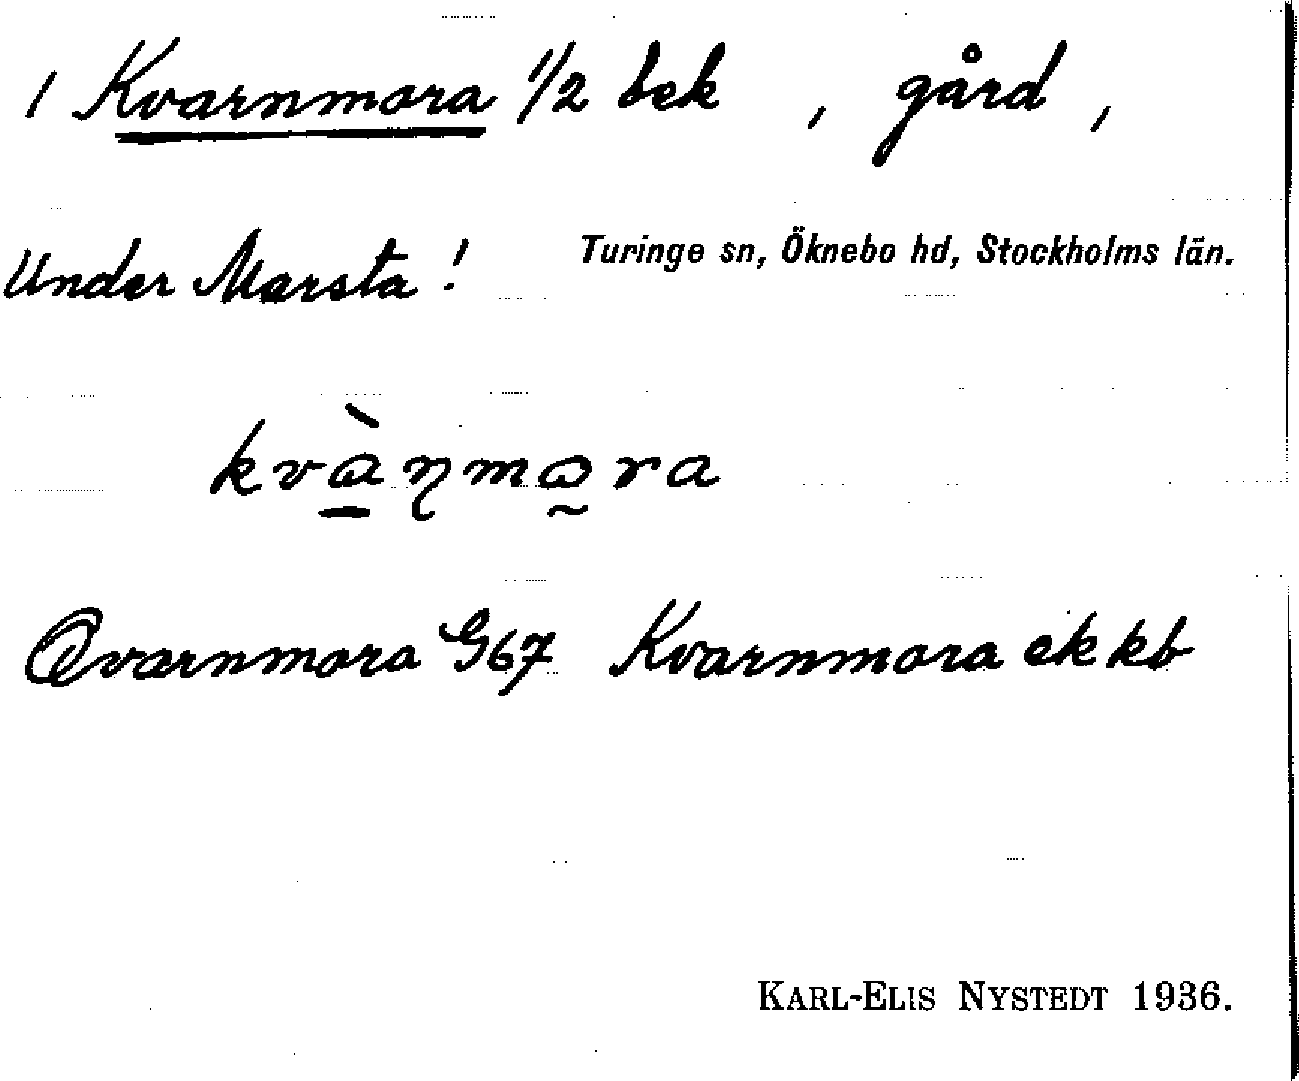 1 Kvarnmora 1/2 bek , gård ,
Under Marsta! Turinge sn, Öknebo hd, Stockholms län.
kvàɳmɷra
Qvarnmora G67 Kvarnmora ek kb
KARL-ELIS NYSTEDT 1936.